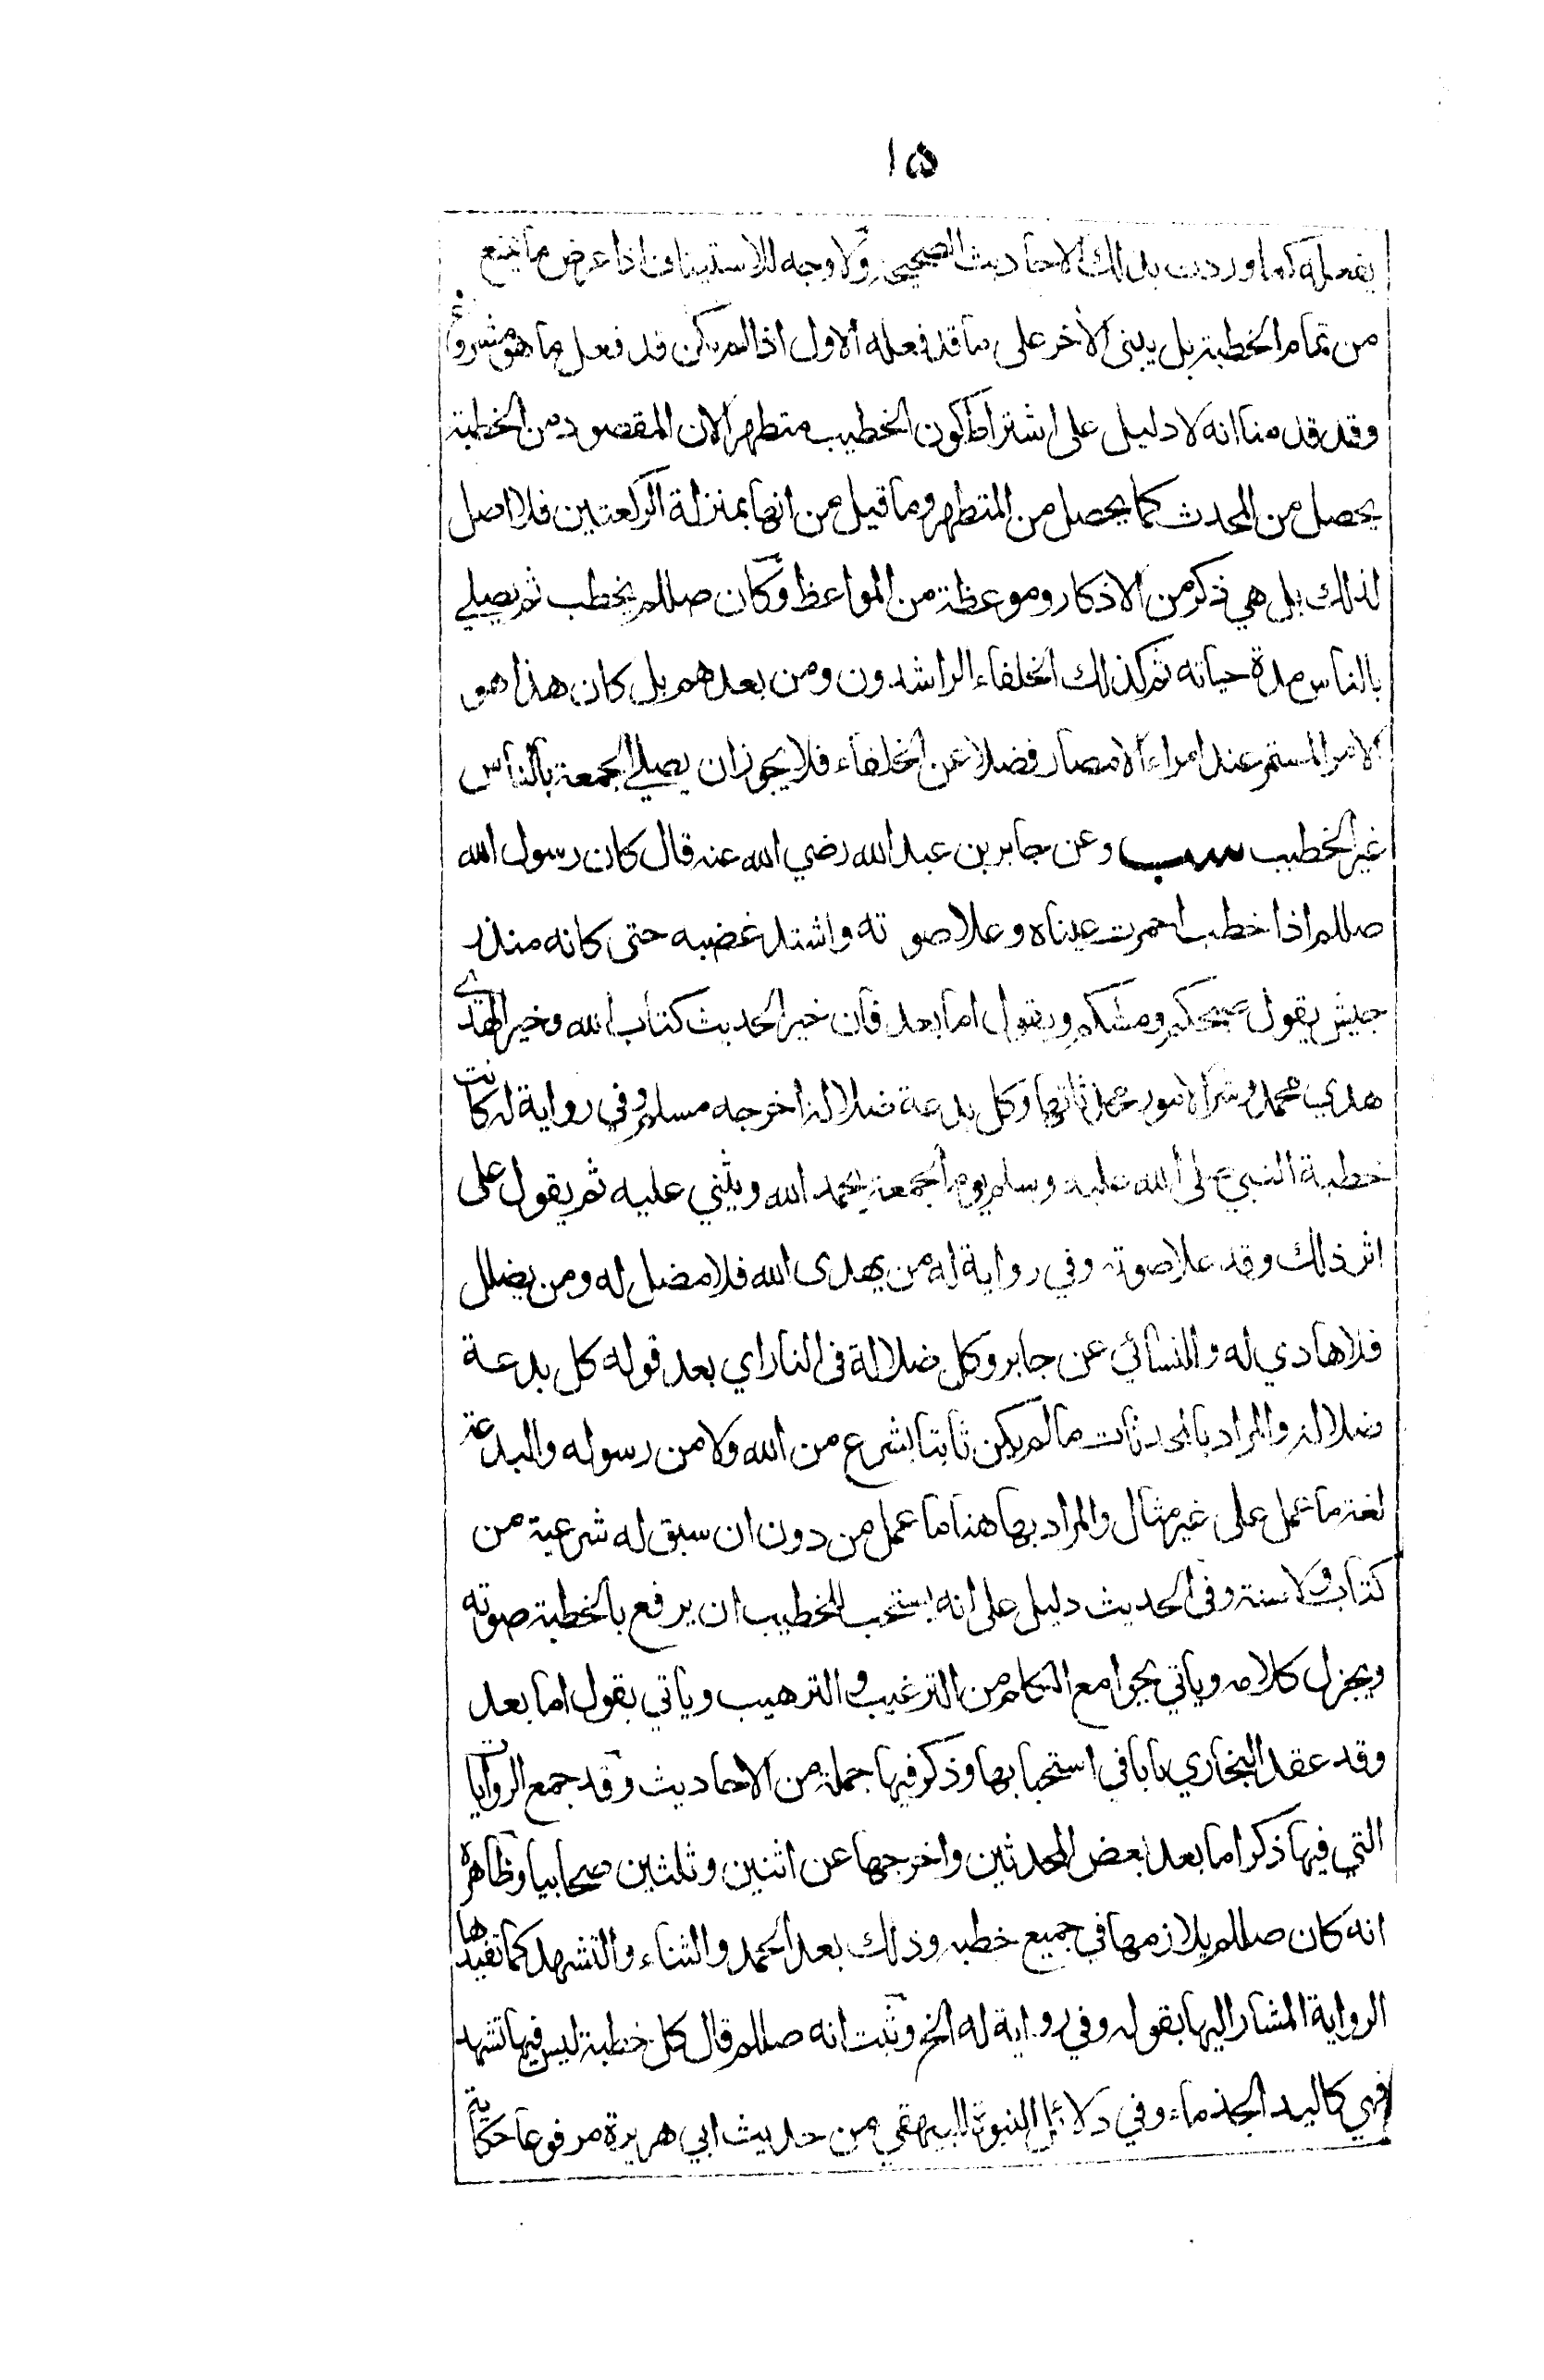 ١٥
يفعله كما وردت بذلك الاحاديث الصحيحة ولا وجه للاستيناف اذا عرض ما يمنع
من تمام الخطبة بل يبنى الاخر على ما قد فعله الاول اذا لم يكن قد فعل ما هو مشروع
وقد قدمنا انه لا دليل على اشتراط كون الخطيب متطهرا لان المقصود من الخطبة
يحصل من المحدث كما يحصل من المتطهر وما قيل من انها بمنزلة الركعتين فلا اصل
لذلك بل هي ذكر من الاذكار وموعظة من المواعظ وكان صللم يخطب ثم يصلي
بالناس مدة حياته ثم كذلك الخلفاء الراشدون ومن بعدهم بل كان هذا هو
الامر المستمر عند امراء الامصار فضلا عن الخلفاء فلا يجوز ان يصلي الجمعة بالناس
غير الخطيب وعن جابر بن عبد الله رضي الله عنه قال كان رسول الله
صللم اذا خطب احمرت عيناه وعلا صوته واشتد غضبه حتى كانه منذر
جيش يقول صبحكم ومسّكم ويقول اما بعد فان خير الحديث كتاب الله وخير الهدي
هدي محمد وشر الامور محدثاتها وكل بدعة ضلالة اخرجه مسلم وفي رواية له كانت
خطبة النبي صلى الله عليه وسلم يوم الجمعة يحمد الله ويثني عليه ثم يقول على
اثر ذلك وقد علا صوته وفي رواية له من يهدى الله فلا مضل له ومن يضلل
فلا هادي له والنسائي عن جابر وكل ضلالة في النار اي بعد قوله كل بدعة
ضلالة والمراد بالمحدثات ما لم يكن ثابتا بشرع من الله ولا من رسوله والبدعة
لغة ما عمل على غير مثال والمراد بها هنا ما عمل من دون ان سبق له شرعية من
كتاب ولا سنة وفي الحديث دليل على انه يستحب للخطيب ان يرفع بالخطبة صوته
ويجزل كلامه وياتي بجوامع الكلم من الترغيب والترهيب وياتي بقول اما بعد
وقد عقد البخاري بابا في استحبابها وذكر فيها جملة من الاحاديث وقد جمع الروايات
التي فيها ذكر اما بعد بعض المحدثين واخرجها عن اثنين وثلثين صحابيا وظاهره
انه كان صللم يلازمها في جميع خطبه وذلك بعد الحمد والثناء والتشهد كما تفيدها
الرواية المشار اليها بقوله وفي رواية له الخ وثبت انه صللم قال كل خطبة ليس فيها تشهد
فهي كاليد الجذماء وفي دلائل النبوة للبيهقي من حديث ابي هريرة مرفوعا حكاية